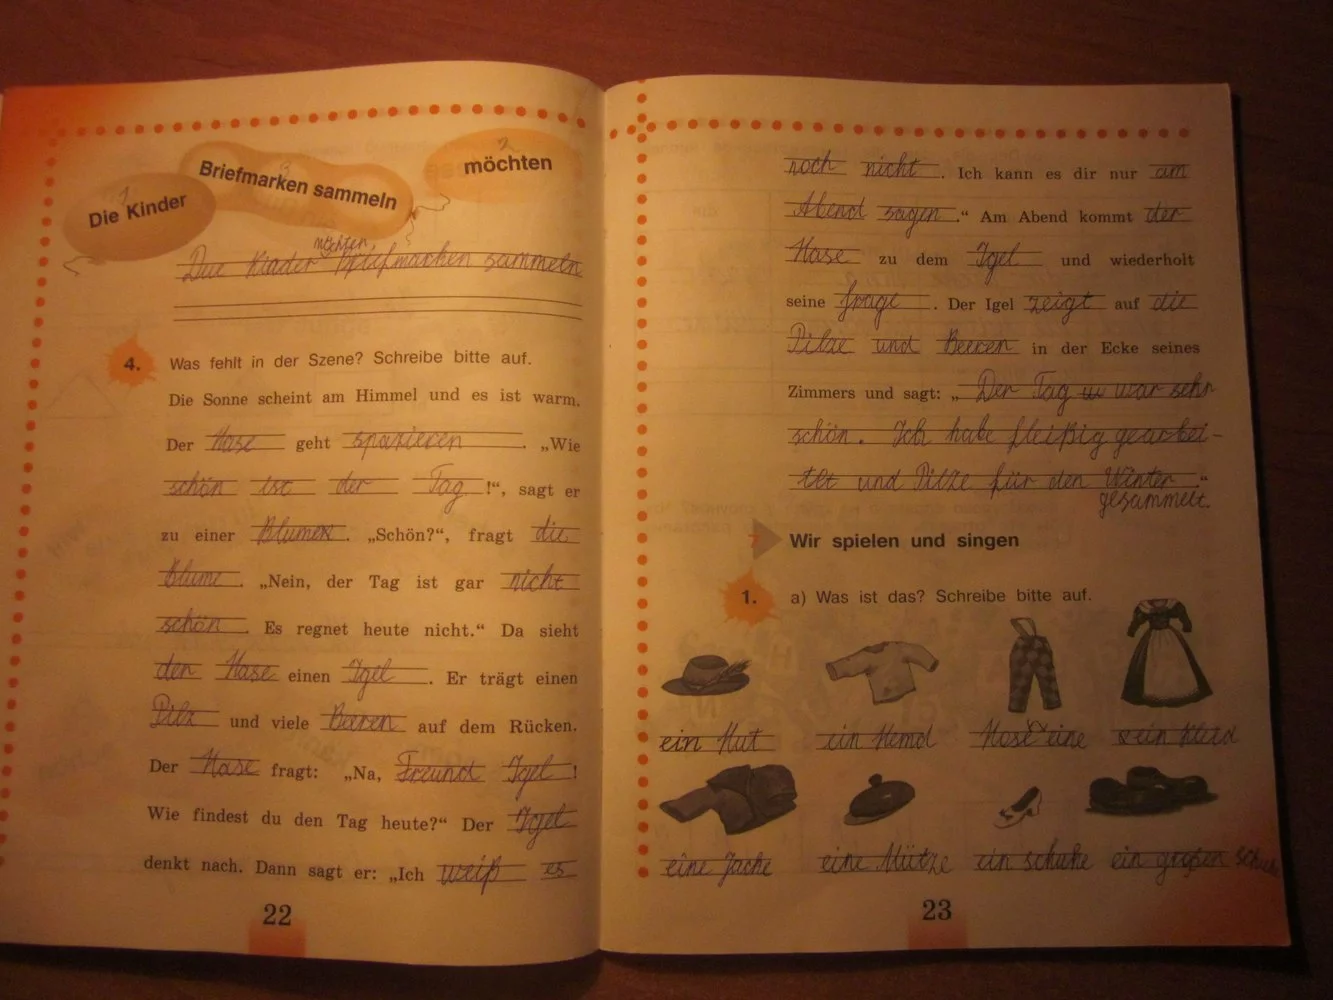 1 3 2
Die Kinder Briefmarken sammeln möchten
möchten,
Die Kinder briefmarken sammeln
4. Was fehlt in der Szene? Schreibe bitte auf.
Die Sonne scheint am Himmel und es ist warm.
Der Hase geht spazieren. „Wie
schön ist der Tag!“, sagt er
zu einer Blumen. „Schön?“, fragt die
Blume. „Nein, der Tag ist gar nicht
schön. Es regnet heute nicht.“ Da sieht
der Hase einen Igel. Er trägt einen
Pilz und viele Beeren auf dem Rücken.
Der Hase fragt: „Na, Freund Igel!
Wie findest du den Tag heute?“ Der Igel
denkt nach. Dann sagt er: „Ich weiß es
22
noch nicht. Ich kann es dir nur am
Abend sagen.“ Am Abend kommt der
Hase zu dem Igel und wiederholt
seine frage. Der Igel zeigt auf die
Pilze und Beeren in der Ecke seines
Zimmers und sagt: „Der Tag war sehr
schön. Ich habe fleißig gearbei-
tet und Pilze für den Winter“
gesammelt.
7 Wir spielen und singen
1. a) Was ist das? Schreibe bitte auf.
ein Hut ein Hemd Hose eine ein Kleid
eine Jacke eine Mütze ein schuhe ein großen schuhe
23